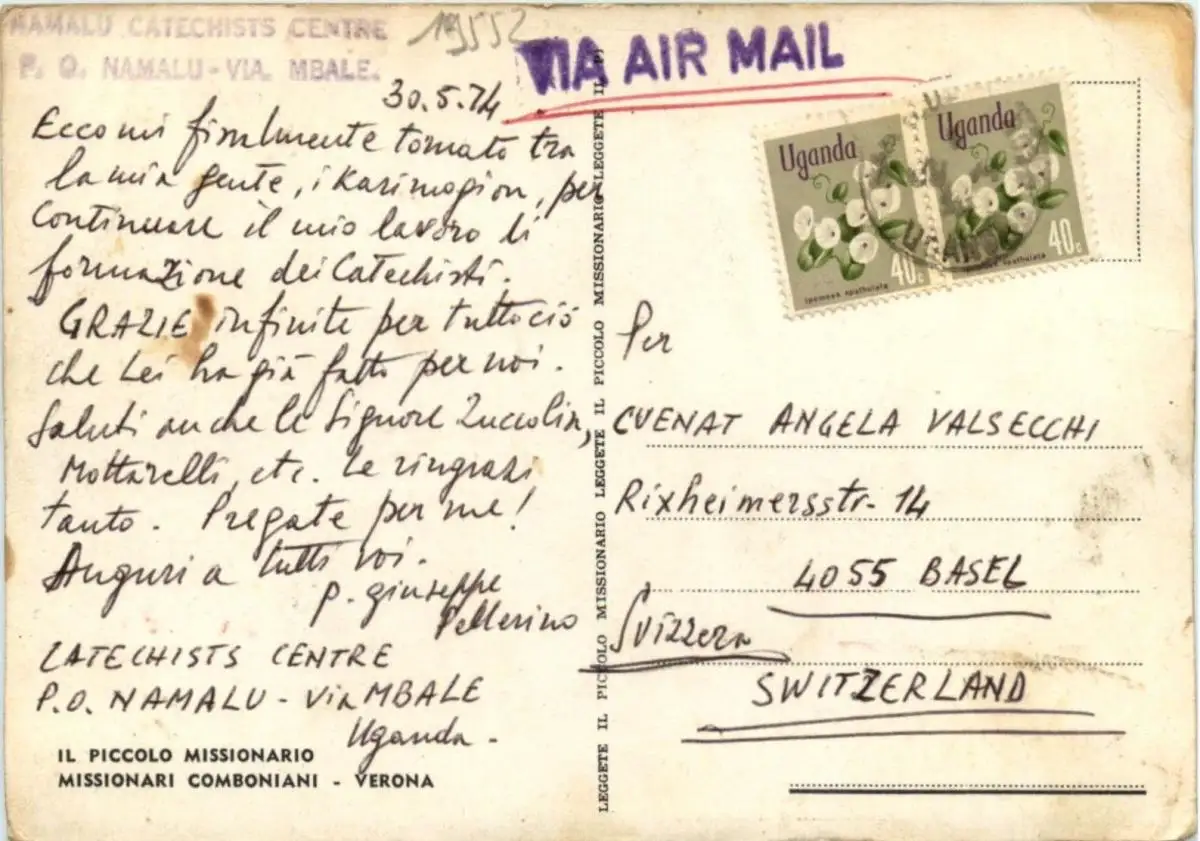 NAMALU CATECHISTS CENTRE
P. O. NAMALU - VIA. MBALE.
19552
VIA AIR MAIL
30.5.74
Eccomi finalmente tornato tra
la mia gente, i Karimogion, per
continuare il mio lavoro di
formazione dei Catechisti.
GRAZIE infinite per tuttociò
che Lei ha già fatto per noi.
Saluti anche le Signore Zuccolin,
Mottarelli, etc. Le ringrazi
tanto. Pregate per me!
Auguri a tutti voi.
p. Giuseppe
Pellerino
CATECHISTS CENTRE
P.O. NAMALU - Via MBALE
Uganda -
IL PICCOLO MISSIONARIO
MISSIONARI COMBONIANI - VERONA
LEGGETE IL PICCOLO MISSIONARIO LEGGETE IL PICCOLO MISSIONARIO LEGGETE IL
Uganda
40c
Ipomoea spathulata
Uganda
40c
Ipomoea spathulata
UGANDA
Per
CUENAT ANGELA VALSECCHI
Rixheimersstr. 14
4055 BASEL
Svizzera
SWITZERLAND